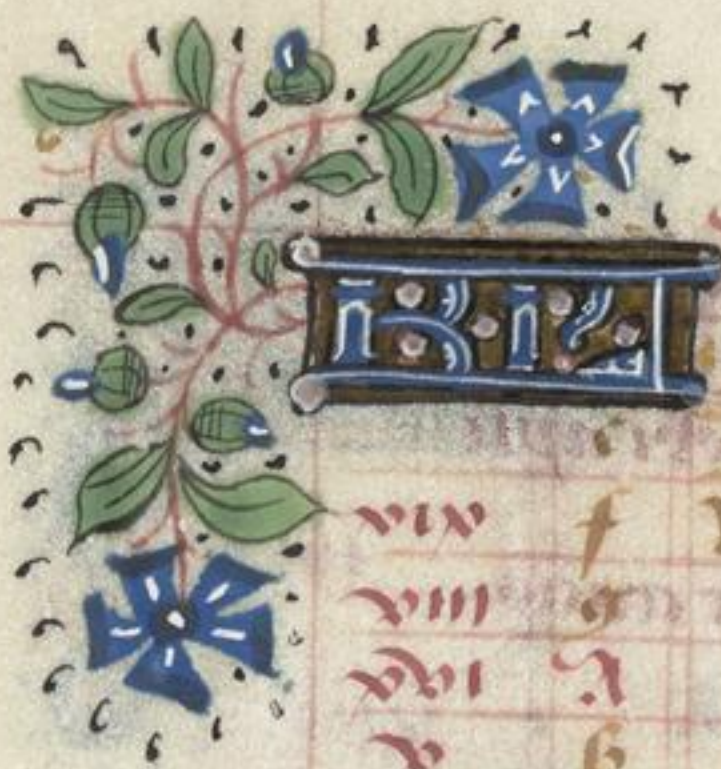 KL
xix f
viii g
xvi A
v b